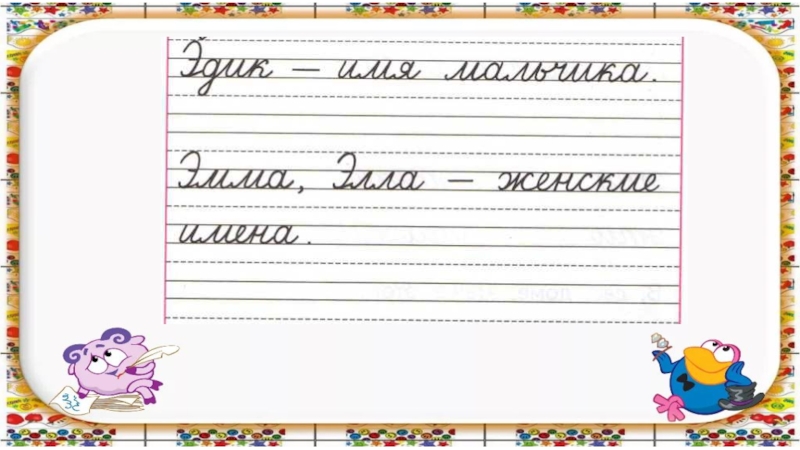 Эдик – имя мальчика.
Эмма, Элла – женские
имена.